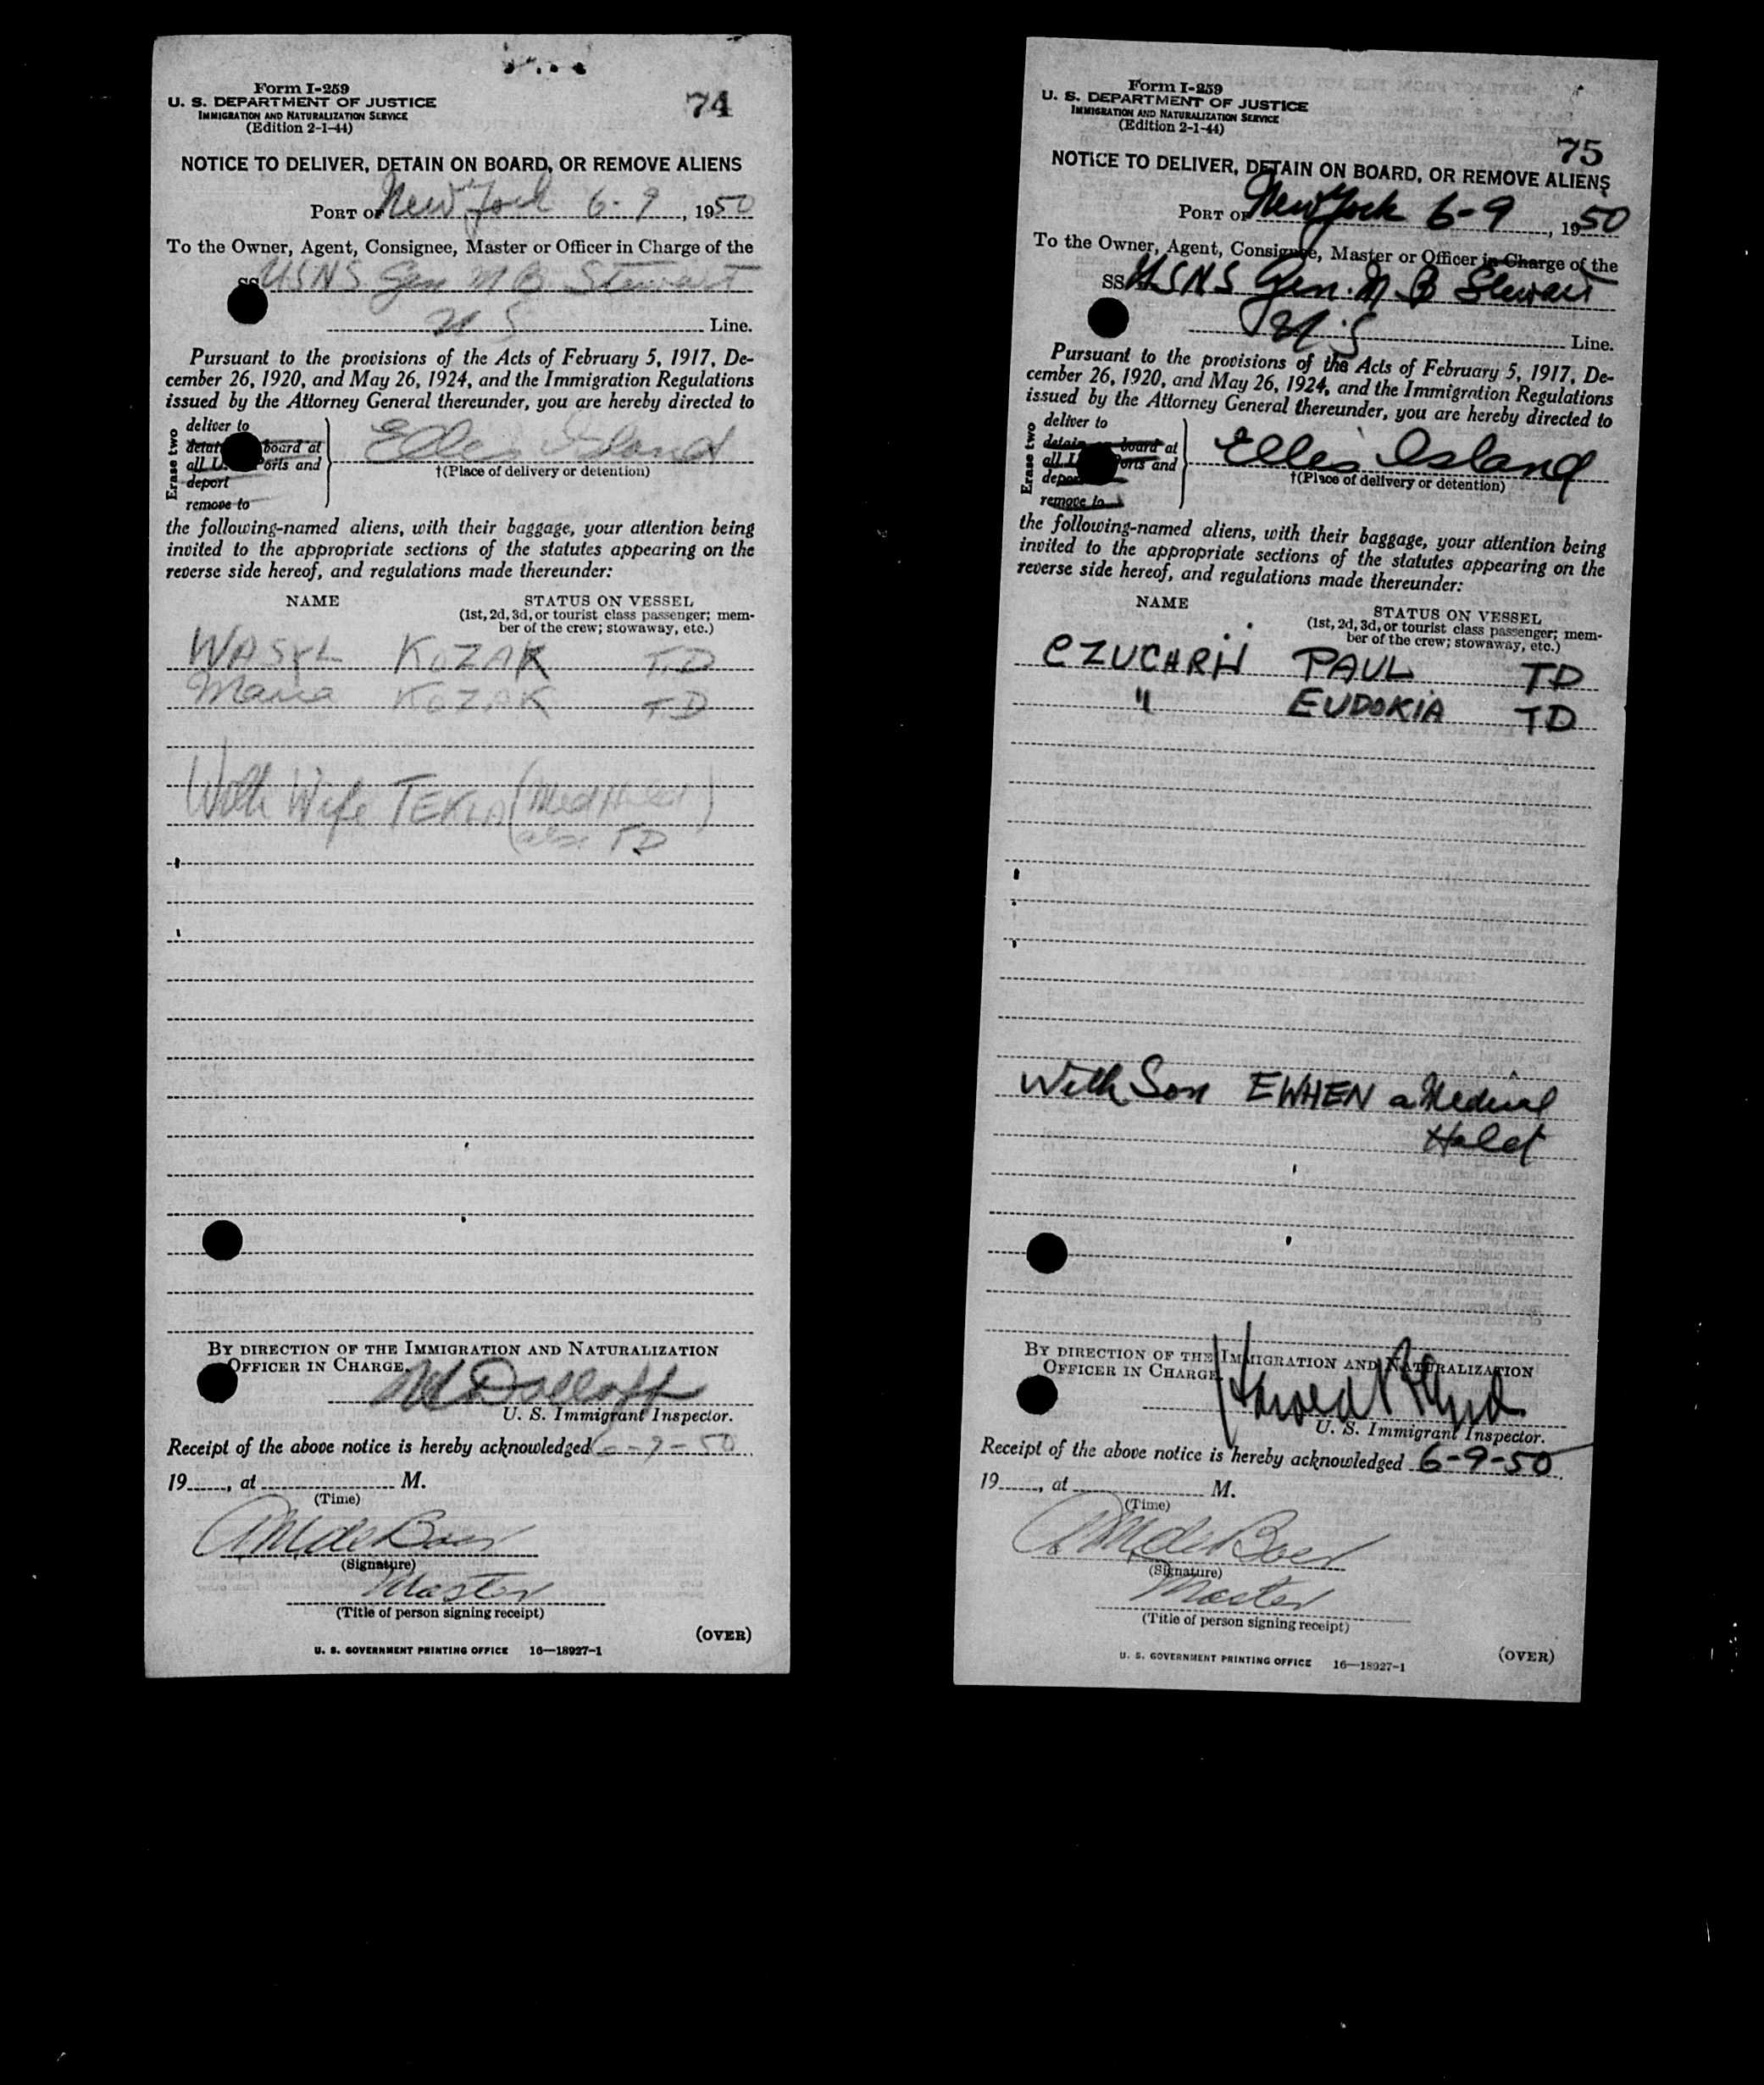 Form I-259
U. S. DEPARTMENT OF JUSTICE
IMMIGRATION AND NATURALIZATION SERVICE
(Edition 2-1-44)
74
NOTICE TO DELIVER, DETAIN ON BOARD, OR REMOVE ALIENS
PORT OF New York 6-9, 1950
To the Owner, Agent, Consignee, Master or Officer in Charge of the
SS USNS Gen M B Stewart
U S Line.
Pursuant to the provisions of the Acts of February 5, 1917, De-
cember 26, 1920, and May 26, 1924, and the Immigration Regulations
issued by the Attorney General thereunder, you are hereby directed to
Erase two
deliver to
board at
all Ports and
deport
remove to
Ellis Island
†(Place of delivery or detention)
the following-named aliens, with their baggage, your attention being
invited to the appropriate sections of the statutes appearing on the
reverse side hereof, and regulations made thereunder:
NAME STATUS ON VESSEL
(1st, 2d, 3d, or tourist class passenger; mem-
ber of the crew; stowaway, etc.)
WASYL KOZAK TD
Maria KOZAK TD
With Wife TEKLA (Med Held)
also TD
BY DIRECTION OF THE IMMIGRATION AND NATURALIZATION
OFFICER IN CHARGE.
U. S. Immigrant Inspector.
Receipt of the above notice is hereby acknowledged 6-9-50
19, at M.
(Time)
AM de Boer
(Signature)
Master
(Title of person signing receipt)
(OVER)
U. S. GOVERNMENT PRINTING OFFICE 16—18927-1
Form I-259
U. S. DEPARTMENT OF JUSTICE
IMMIGRATION AND NATURALIZATION SERVICE
(Edition 2-1-44)
75
NOTICE TO DELIVER, DETAIN ON BOARD, OR REMOVE ALIENS
PORT OF New York 6-9, 1950
To the Owner, Agent, Consignee, Master or Officer in Charge of the
SS USNS Gen. M B Stewart
U.S Line.
Pursuant to the provisions of the Acts of February 5, 1917, De-
cember 26, 1920, and May 26, 1924, and the Immigration Regulations
issued by the Attorney General thereunder, you are hereby directed to
Erase two
deliver to
detain board at
all Ports and
remove to
Ellis Island
†(Place of delivery or detention)
the following-named aliens, with their baggage, your attention being
invited to the appropriate sections of the statutes appearing on the
reverse side hereof, and regulations made thereunder:
NAME STATUS ON VESSEL
(1st, 2d, 3d, or tourist class passenger; mem-
ber of the crew; stowaway, etc.)
CZUCHRIJ PAUL TD
" EUDOKIA TD
With Son EWHEN a Medical
Held
BY DIRECTION OF THE IMMIGRATION AND NATURALIZATION
OFFICER IN CHARGE.
U. S. Immigrant Inspector.
Receipt of the above notice is hereby acknowledged 6-9-50
19, at M.
(Time)
AM de Boer
(Signature)
Master
(Title of person signing receipt)
(OVER)
U. S. GOVERNMENT PRINTING OFFICE 16—18927-1